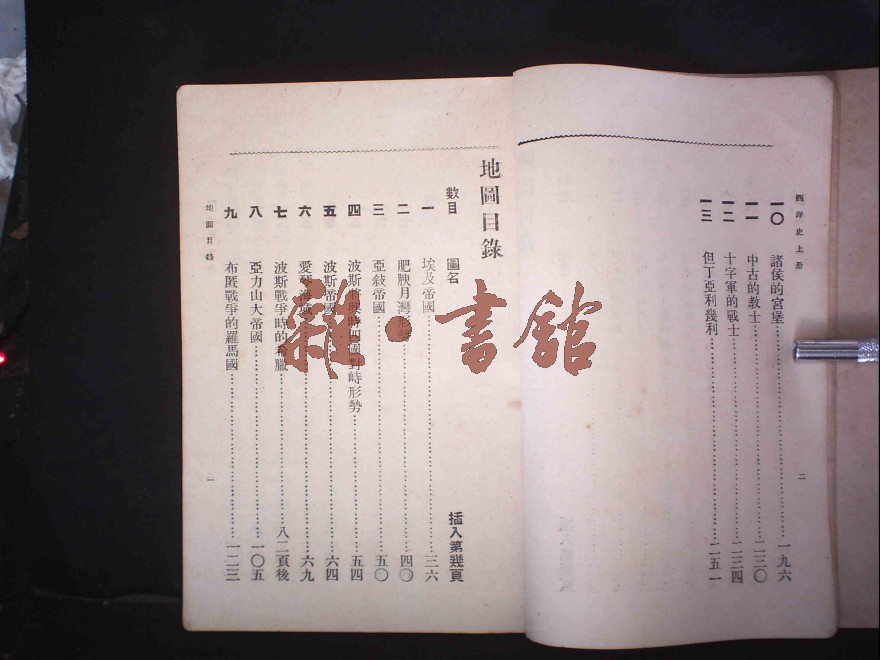 西洋史上册
一〇　諸侯的宮堡……一九六
一一　中古的教士……二三〇
一二　十字軍的戰士……二三四
一三　但丁亞利幾利……二五一
二
地圖目錄
數目　圖名　插入第幾頁
一　埃及帝國……三六
二　肥腴月灣形勢……四〇
三　亞敍帝國……五〇
四　波斯將興時四國對峙形勢……五四
五　波斯帝國……六四
六　愛琴海域……六九
七　波斯戰爭時的希臘……八二頁後
八　亞力山大帝國……一〇五
九　布匿戰爭時的羅馬國……一二三
地圖目錄
二
雜·書館